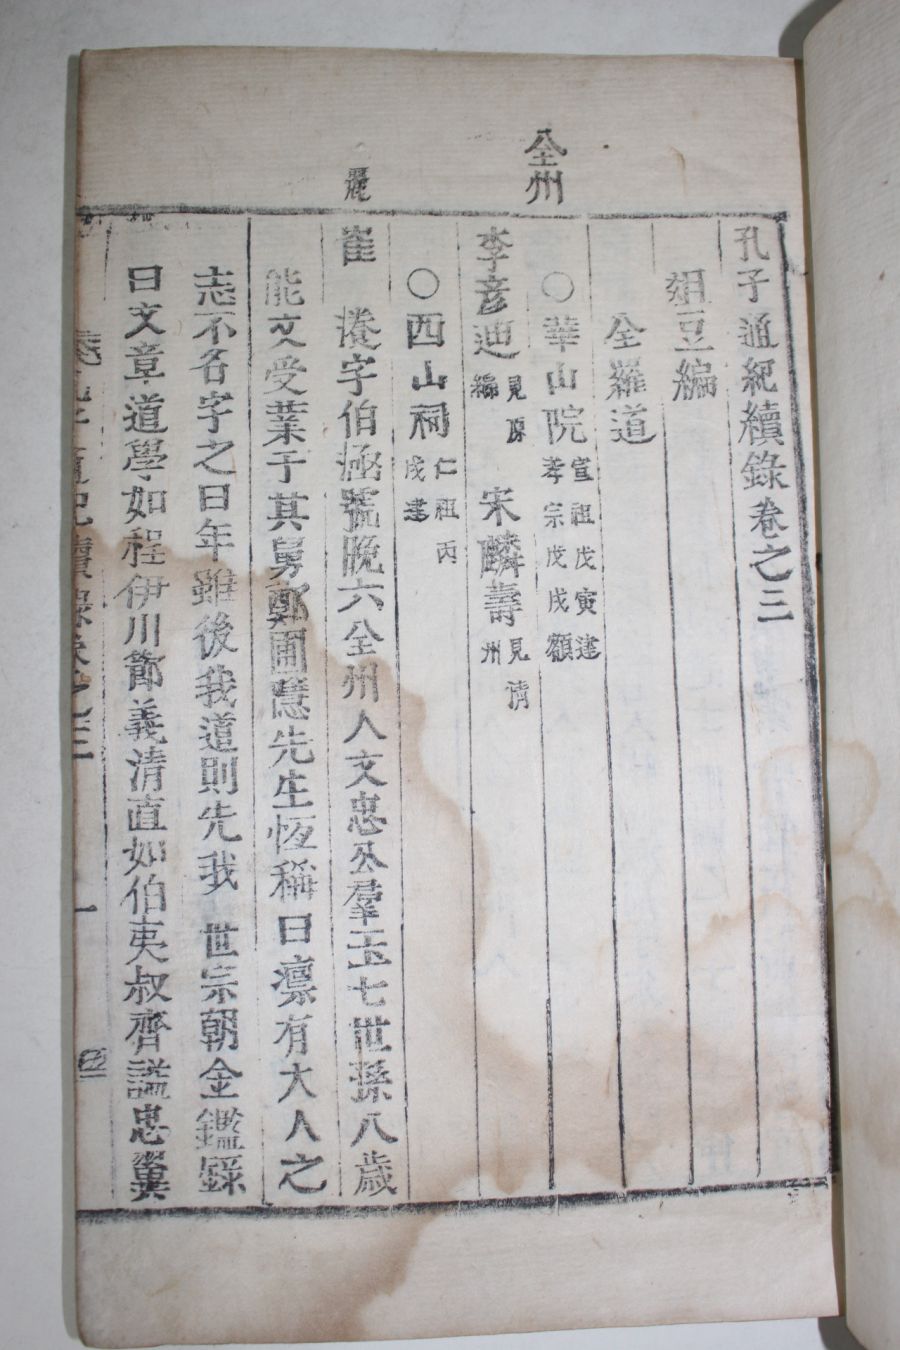 孔子通紀續錄卷之三
俎豆編
全羅道
全州
○華山院 宣祖戊寅建 孝宗戊戌額
李彦迪 見原編 宋麟壽 見淸州
○西山祠 仁祖丙戌建
麗
崔瀁字伯涵號晩六全州人文忠公羣玉七世孫八歲
能文受業于其舅鄭圃隱先生恆稱曰凛有大人之
志不名字之曰年雖後我道則先我 世宗朝金鑑錄
曰文章道學如程伊川節義淸直如伯夷叔齊謚忠翼